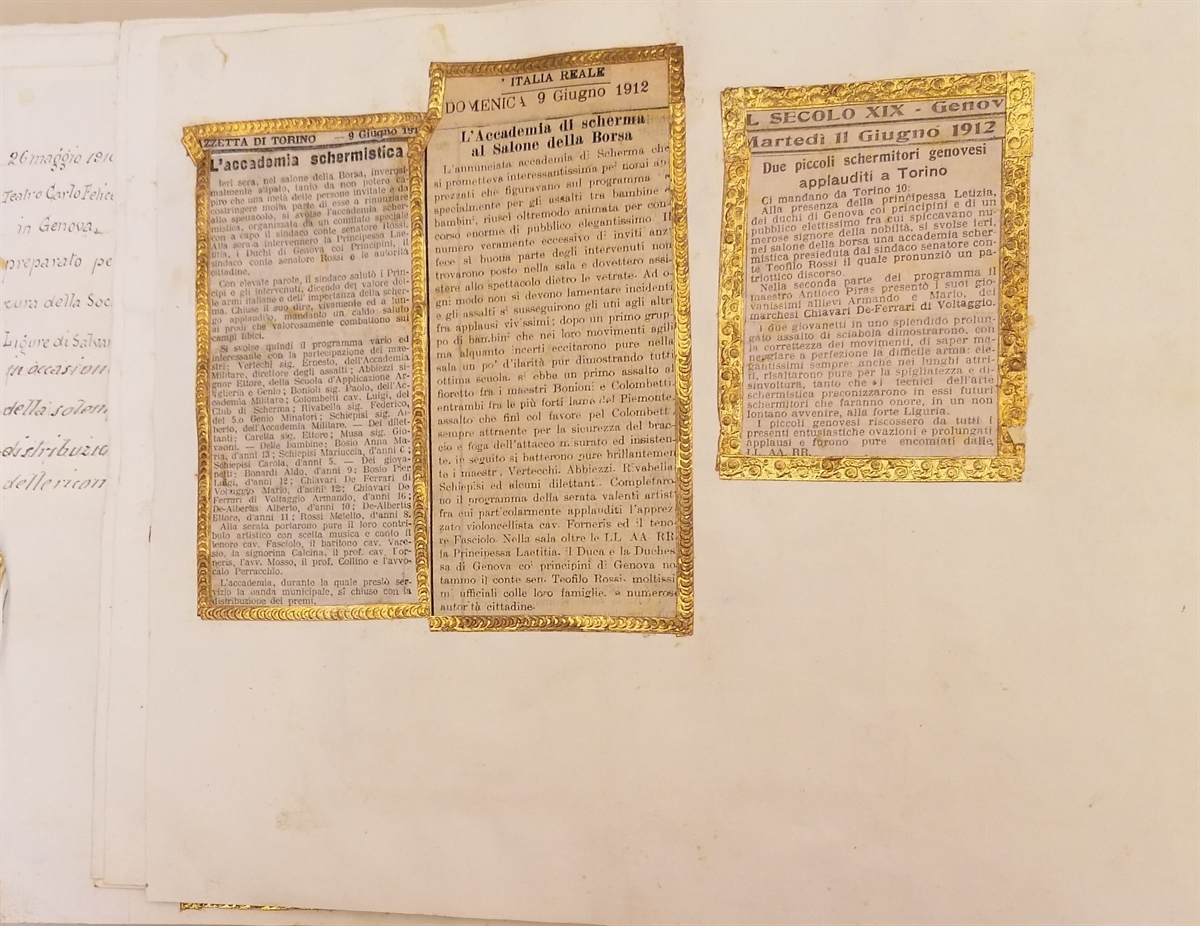 26 maggio 191
Teatro Carlo Felice
in Genova
preparato pe
cura della Soc
Ligure di Salva
in occasion
della solen
distribuzio
delle ricom
ZZETTA DI TORINO — 9 Giugno 191
L'accademia schermistica
Ieri sera, nel salone della Borsa, inverosi-
malmente stipato, tanto da non potere ca-
pire che una metà delle persone invitate e da
costringere molta parte di esse a rinunziare
allo spettacolo, si svolse l'accademia scher-
mistica, organizzata da un comitato speciale
con a capo il sindaco conte senatore Rossi.
Alla sera intervennero la Principessa Lae-
titia, i Duchi di Genova coi Principini, il
sindaco conte senatore Rossi e le autorità
cittadine.
Con elevate parole, il sindaco salutò i Prin-
cipi e gli intervenuti, dicendo del valore del-
le armi italiane e dell'importanza della scher-
ma. Chiuse il suo dire, vivamente ed a lun-
go applaudito, mandando un caldo saluto
ai prodi che valorosamente combattono sui
campi libici.
Si svolse quindi il programma vario ed
interessante con la partecipazione dei mae-
stri: Vertechi sig. Ernesto, dell'Accademia
Militare, direttore degli assalti; Abbiezzi si-
gnor Ettore, della Scuola d'Applicazione Ar-
tiglieria e Genio; Bonioli sig. Paolo, dell'Ac-
cademia Militare; Colombetti cav. Luigi, del
Club di Scherma; Rivabella sig. Federico,
del 5.o Genio Minatori; Schiepisi sig. Ae-
berto, dell'Accademia Militare. — Dei dilet-
tanti: Carella sig. Ettore; Musa sig. Gio-
vanni. — Delle bambine: Bosio Anna Ma-
ria, d'anni 13; Schiepisi Mariuccia, d'anni 6;
Schiepisi Carola, d'anni 5. — Dei giova-
netti: Bonardi Aldo, d'anni 9; Bosio Pier
Luigi, d'anni 12; Chiavari De Ferrari di
Voltaggio Mario, d'anni 12; Chiavari De
Ferrari di Voltaggio Armando, d'anni 16;
De-Albertis Alberto, d'anni 10; De-Albertis
Ettore, d'anni 11; Rossi Metello, d'anni 8.
Alla serata portarono pure il loro contri-
buto artistico con scelta musica e canto il
tenore cav. Fasciolo, il baritono cav. Vare-
sio, la signorina Calcina, il prof. cav. For-
neris, l'avv. Mosso, il prof. Collino e l'avvo-
cato Perracchio.
L'accademia, durante la quale prestò ser-
vizio la banda municipale, si chiuse con la
distribuzione dei premi.
' ITALIA REALE
DOMENICA 9 Giugno 1912
L'Accademia di scherma
al Salone della Borsa
L'annunciata accademia di Scherma che
si prometteva interessantissima pei nomi ap
prezzati che figuravano sul programma e
specialmente per gli assalti tra bambine e
bambini, riuscì oltremodo animata per con-
corso enorme di pubblico elegantissimo. Il
numero veramente eccessivo di inviti anzi
fece sì buona parte degli intervenuti non
trovarono posto nella sala e dovettero assi-
stere allo spettacolo dietro le vetrate. Ad o-
gni modo non si devono lamentare incidenti
e gli assalti si susseguirono gli uni agli altri
fra applausi vivissimi; dopo un primo grup-
po di bambini che nei loro movimenti agili
ma alquanto incerti eccitarono pure nella
sala un po' d'ilarità pur dimostrando tutti
ottima scuola, si ebbe un primo assalto al
fioretto fra i maestri Bonioni e Colombetti,
entrambi fra le più forti lame del Piemonte,
assalto che finì col favore pel Colombetti
sempre attraente per la sicurezza del brac-
cio e foga dell'attacco misurato ed insisten-
te. in seguito si batterono pure brillantemen
te i maestri, Vertecchi, Abbiezzi, Rivabella
Schiepisi ed alcuni dilettanti. Completaro-
no il programma della serata valenti artisti
fra cui particolarmente applauditi l'apprez
zato violoncellista cav. Forneris ed il teno-
re Fasciolo. Nella sala oltre le LL. AA. RR.
la Principessa Laetitia, il Duca e la Duches
sa di Genova co' principini di Genova no-
tammo il conte sen. Teofilo Rossi, moltissi
mi ufficiali colle loro famiglie, e numerose
autorità cittadine.
L SECOLO XIX - Genov
Martedì 11 Giugno 1912
Due piccoli schermitori genovesi
applauditi a Torino
Ci mandano da Torino 10:
Alla presenza della principessa Letizia,
dei duchi di Genova coi principini e di un
pubblico elettissimo fra cui spiccavano nu-
merose signore della nobiltà, si svolse ieri,
nel salone della borsa una accademia scher-
mistica presieduta dal sindaco senatore con-
te Teofilo Rossi il quale pronunziò un pa-
triottico discorso.
Nella seconda parte del programma il
maestro Antioco Piras presentò i suoi gio-
vanissimi allievi Armando e Mario, dei
marchesi Chiavari De-Ferrari di Voltaggio.
I due giovanetti in uno splendido prolun-
gato assalto di sciabola dimostrarono, con
la correttezza dei movimenti, di saper ma-
neggiare a perfezione la difficile arma: ele-
gantissimi sempre anche nei lunghi attri-
ti, risaltarono pure per la spigliatezza e di-
sinvoltura, tanto che i tecnici dell'arte
schermistica preconizzarono in essi futuri
schermitori che faranno onore, in un non
lontano avvenire, alla forte Liguria.
I piccoli genovesi riscossero da tutti i
presenti entusiastiche ovazioni e prolungati
applausi e furono pure encomiati dalle
LL. AA. RR.